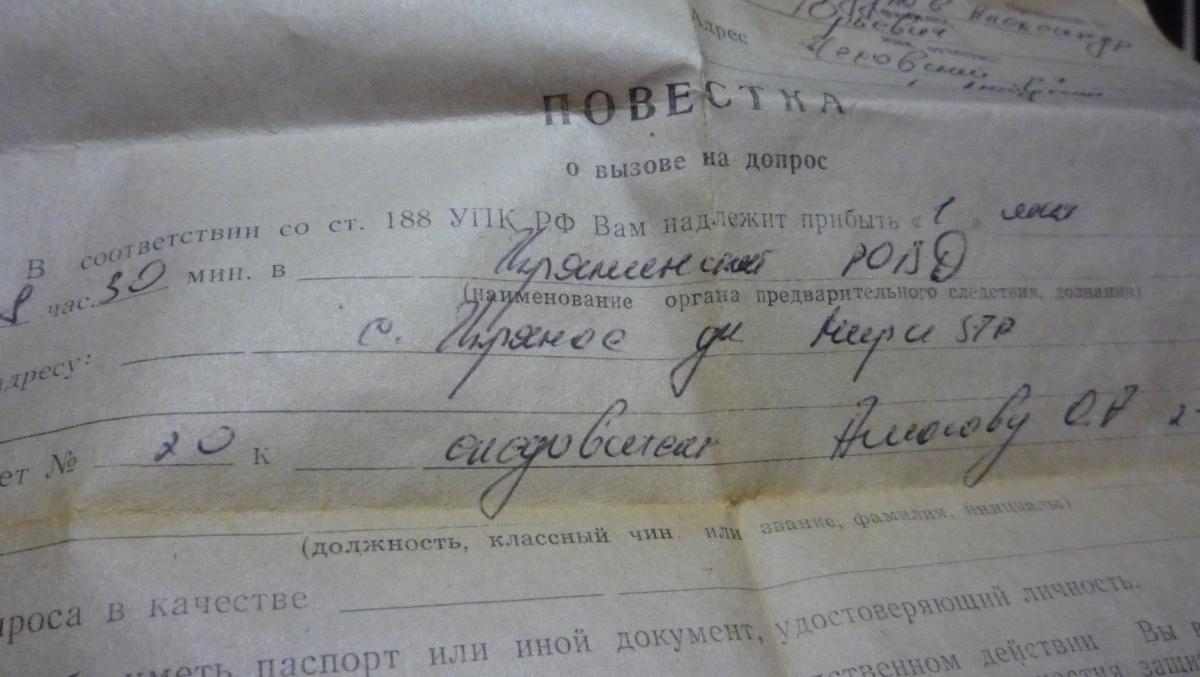 Александр
Юрьевич
Адрес
ПОВЕСТКА
о вызове на допрос
В соответствии со ст. 188 УПК РФ Вам надлежит прибыть « 1 » мая
8 час. 30 мин. в Пряжинский РОВД
(наименование органа предварительного следствия, дознания)
адресу: Мира 57А
ет № 20 к Амосову О.А
(должность, классный чин или звание, фамилия, инициалы)
проса в качестве
иметь паспорт или иной документ, удостоверяющий личность.
ственном действии Вы в
защи